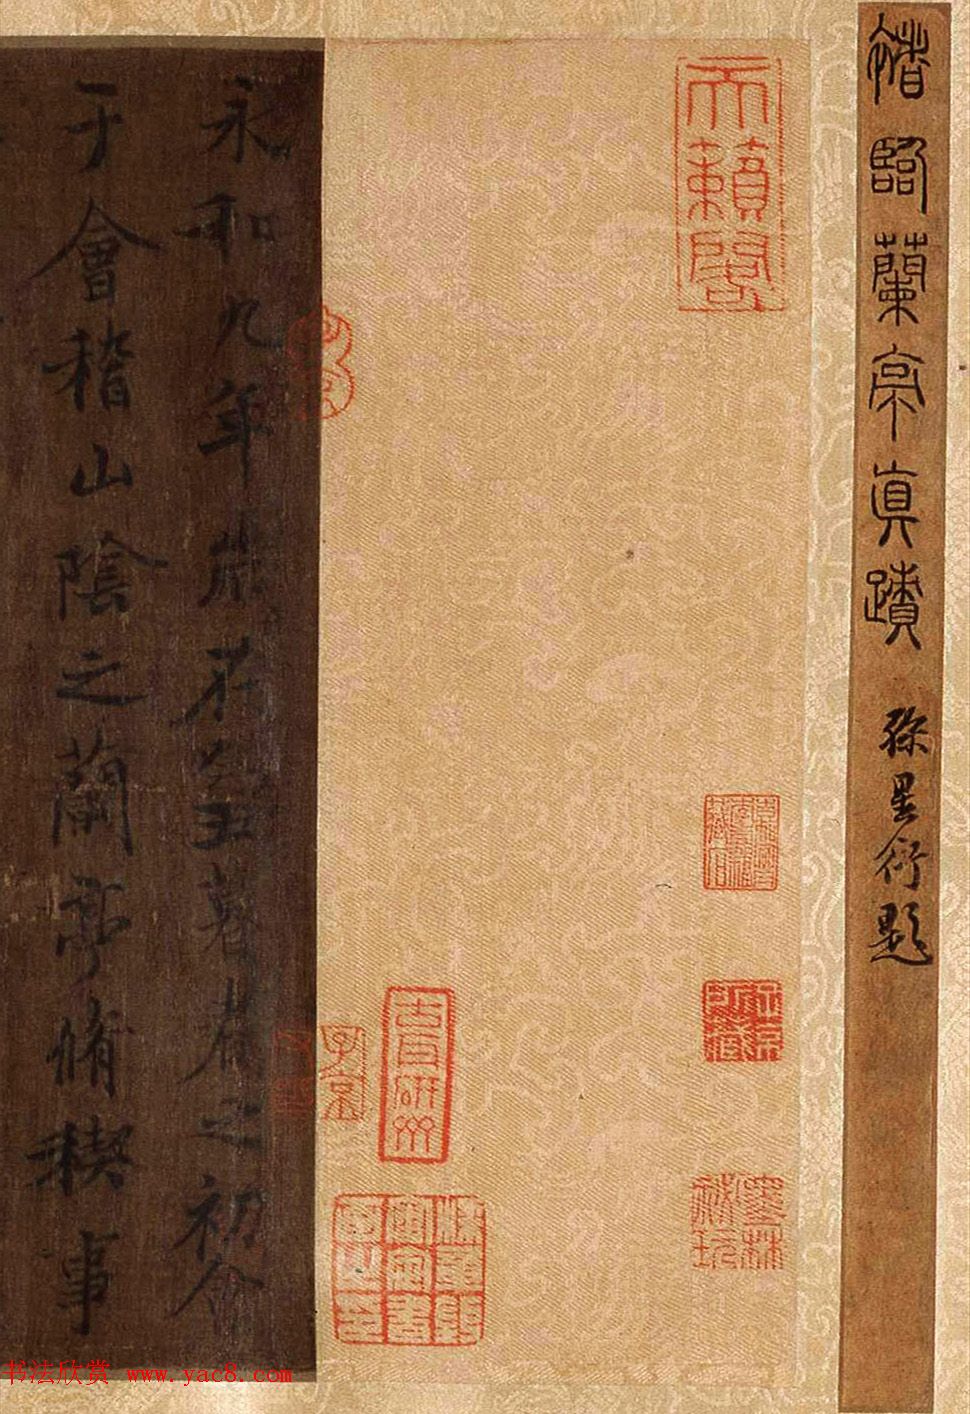 褚臨蘭亭眞蹟 孫星衍題
天籟閣
墨林祕玩
子京
永和九年歲在癸丑暮春之初會
于會稽山陰之蘭亭脩稧事
书法欣赏 www.yac8.com